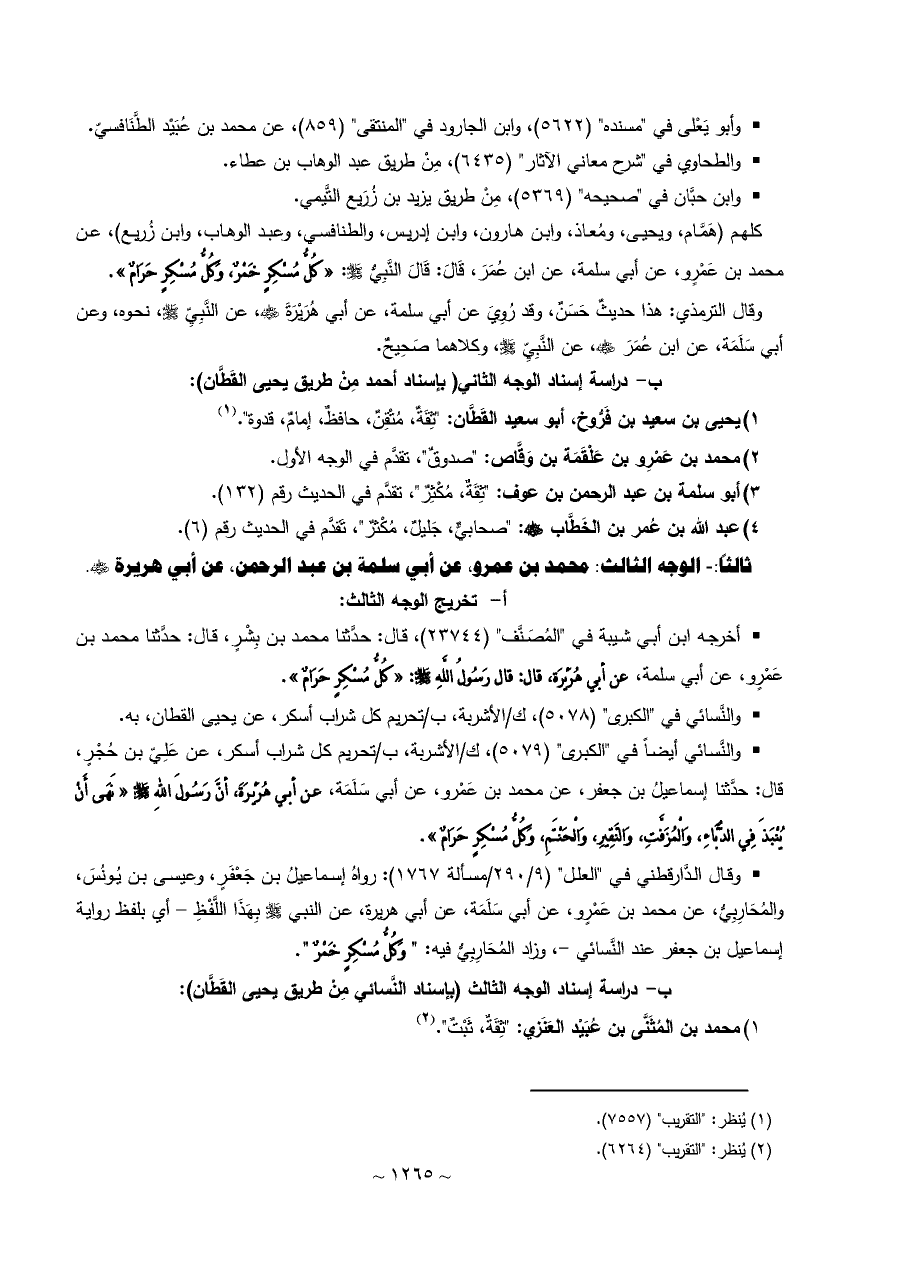 ▪ وأبو يَعْلى في "مسنده" (٥٦٢٢)، وابن الجارود في "المنتقى" (٨٥٩)، عن محمد بن عُبَيْد الطَّنَافسيّ.
▪ والطحاوي في "شرح معاني الآثار" (٦٤٣٥)، مِنْ طريق عبد الوهاب بن عطاء.
▪ وابن حبَّان في "صحيحه" (٥٣٦٩)، مِنْ طريق يزيد بن زُرَيع التَّيمي.
كلهم (هَمَّام، ويحيى، ومُعاذ، وابن هارون، وابن إدريس، والطنافسي، وعبد الوهاب، وابن زُريع)، عن
محمد بن عَمْرٍو، عن أبي سلمة، عن ابن عُمَرَ، قَالَ: قَالَ النَّبِيُّ ﷺ: «كُلُّ مُسْكِرٍ خَمْرٌ، وَكُلُّ مُسْكِرٍ حَرَامٌ».
وقال الترمذي: هذا حديثٌ حَسَنٌ، وقد رُوِيَ عن أبي سلمة، عن أبي هُرَيْرَةَ ﷺ، عن النَّبِيِّ ﷺ، نحوه، وعن
أبي سَلَمَة، عن ابن عُمَرَ ﷺ، عن النَّبِيِّ ﷺ، وكلاهما صَحِيحٌ.
ب– دراسة إسناد الوجه الثاني( بإسناد أحمد مِنْ طريق يحيى القَطَّان):
١) يحيى بن سعيد بن فَرُّوخ، أبو سعيد القَطَّان: "ثِقَةٌ، مُتْقِنٌ، حافظٌ، إمامٌ، قدوة".(١)
٢) محمد بن عَمْرِو بن عَلْقَمَة بن وَقَّاص: "صدوقٌ"، تقدَّم في الوجه الأول.
٣) أبو سلمة بن عبد الرحمن بن عوف: "ثِقَةٌ، مُكْثِرٌ"، تقدَّم في الحديث رقم (١٣٢).
٤) عبد الله بن عُمر بن الخَطَّاب ﷺ: "صحابيٌّ، جَليلٌ، مُكْثرٌ"، تَقدَّم في الحديث رقم (٦).
ثالثاً:- الوجه الثالث: محمد بن عمرو، عن أبي سلمة بن عبد الرحمن، عن أبي هريرة ﷺ.
أ– تخريج الوجه الثالث:
▪ أخرجه ابن أبي شيبة في "المُصَنَّف" (٢٣٧٤٤)، قال: حدَّثنا محمد بن بِشْرٍ، قال: حدَّثنا محمد بن
عَمْرٍو، عن أبي سلمة، عن أبي هُرَيْرَة، قال: قال رَسُولُ اللَّهِ ﷺ: «كُلُّ مُسْكِرٍ حَرَامٌ».
▪ والنَّسائي في "الكبرى" (٥٠٧٨)، ك/الأشربة، ب/تحريم كل شراب أسكر، عن يحيى القطان، به.
▪ والنَّسائي أيضاً في "الكبرى" (٥٠٧٩)، ك/الأشربة، ب/تحريم كل شراب أسكر، عن عَلِيّ بن حُجْرٍ،
قال: حدَّثنا إسماعيلُ بن جعفر، عن محمد بن عَمْرو، عن أبي سَلَمَة، عن أبي هُرَيْرَةَ، أنَّ رَسُولَ اللهِ ﷺ «نَهَى أَنْ
يُنْبَذَ فِي الدُّبَّاءِ، وَالْمُزَفَّتِ، وَالنَّقِيرِ، وَالْحَنْتَمِ، وَكُلُّ مُسْكِرٍ حَرَامٌ».
▪ وقال الدَّارقطني في "العلل" (٢٩٠/٩/مسألة ١٧٦٧): رواهُ إسماعيلُ بن جَعْفَرٍ، وعيسى بن يُونُسَ،
والمُحَارِبِيُّ، عن محمد بن عَمْرٍو، عن أبي سَلَمَة، عن أبي هريرة، عن النبي ﷺ بِهَذَا اللَّفْظِ – أي بلفظ رواية
إسماعيل بن جعفر عند النَّسائي –، وزاد المُحَارِبِيُّ فيه: " وَكُلُّ مُسْكِرٍ خَمْرٌ ".
ب– دراسة إسناد الوجه الثالث (بإسناد النَّسائي مِنْ طريق يحيى القَطَّان):
١) محمد بن المُثَنَّى بن عُبَيْد العَنَزي: "ثِقَةٌ، ثَبْتٌ".(٢)
(١) يُنظر: "التقريب" (٧٥٥٧).
(٢) يُنظر: "التقريب" (٦٢٦٤).
~ ١٢٦٥ ~